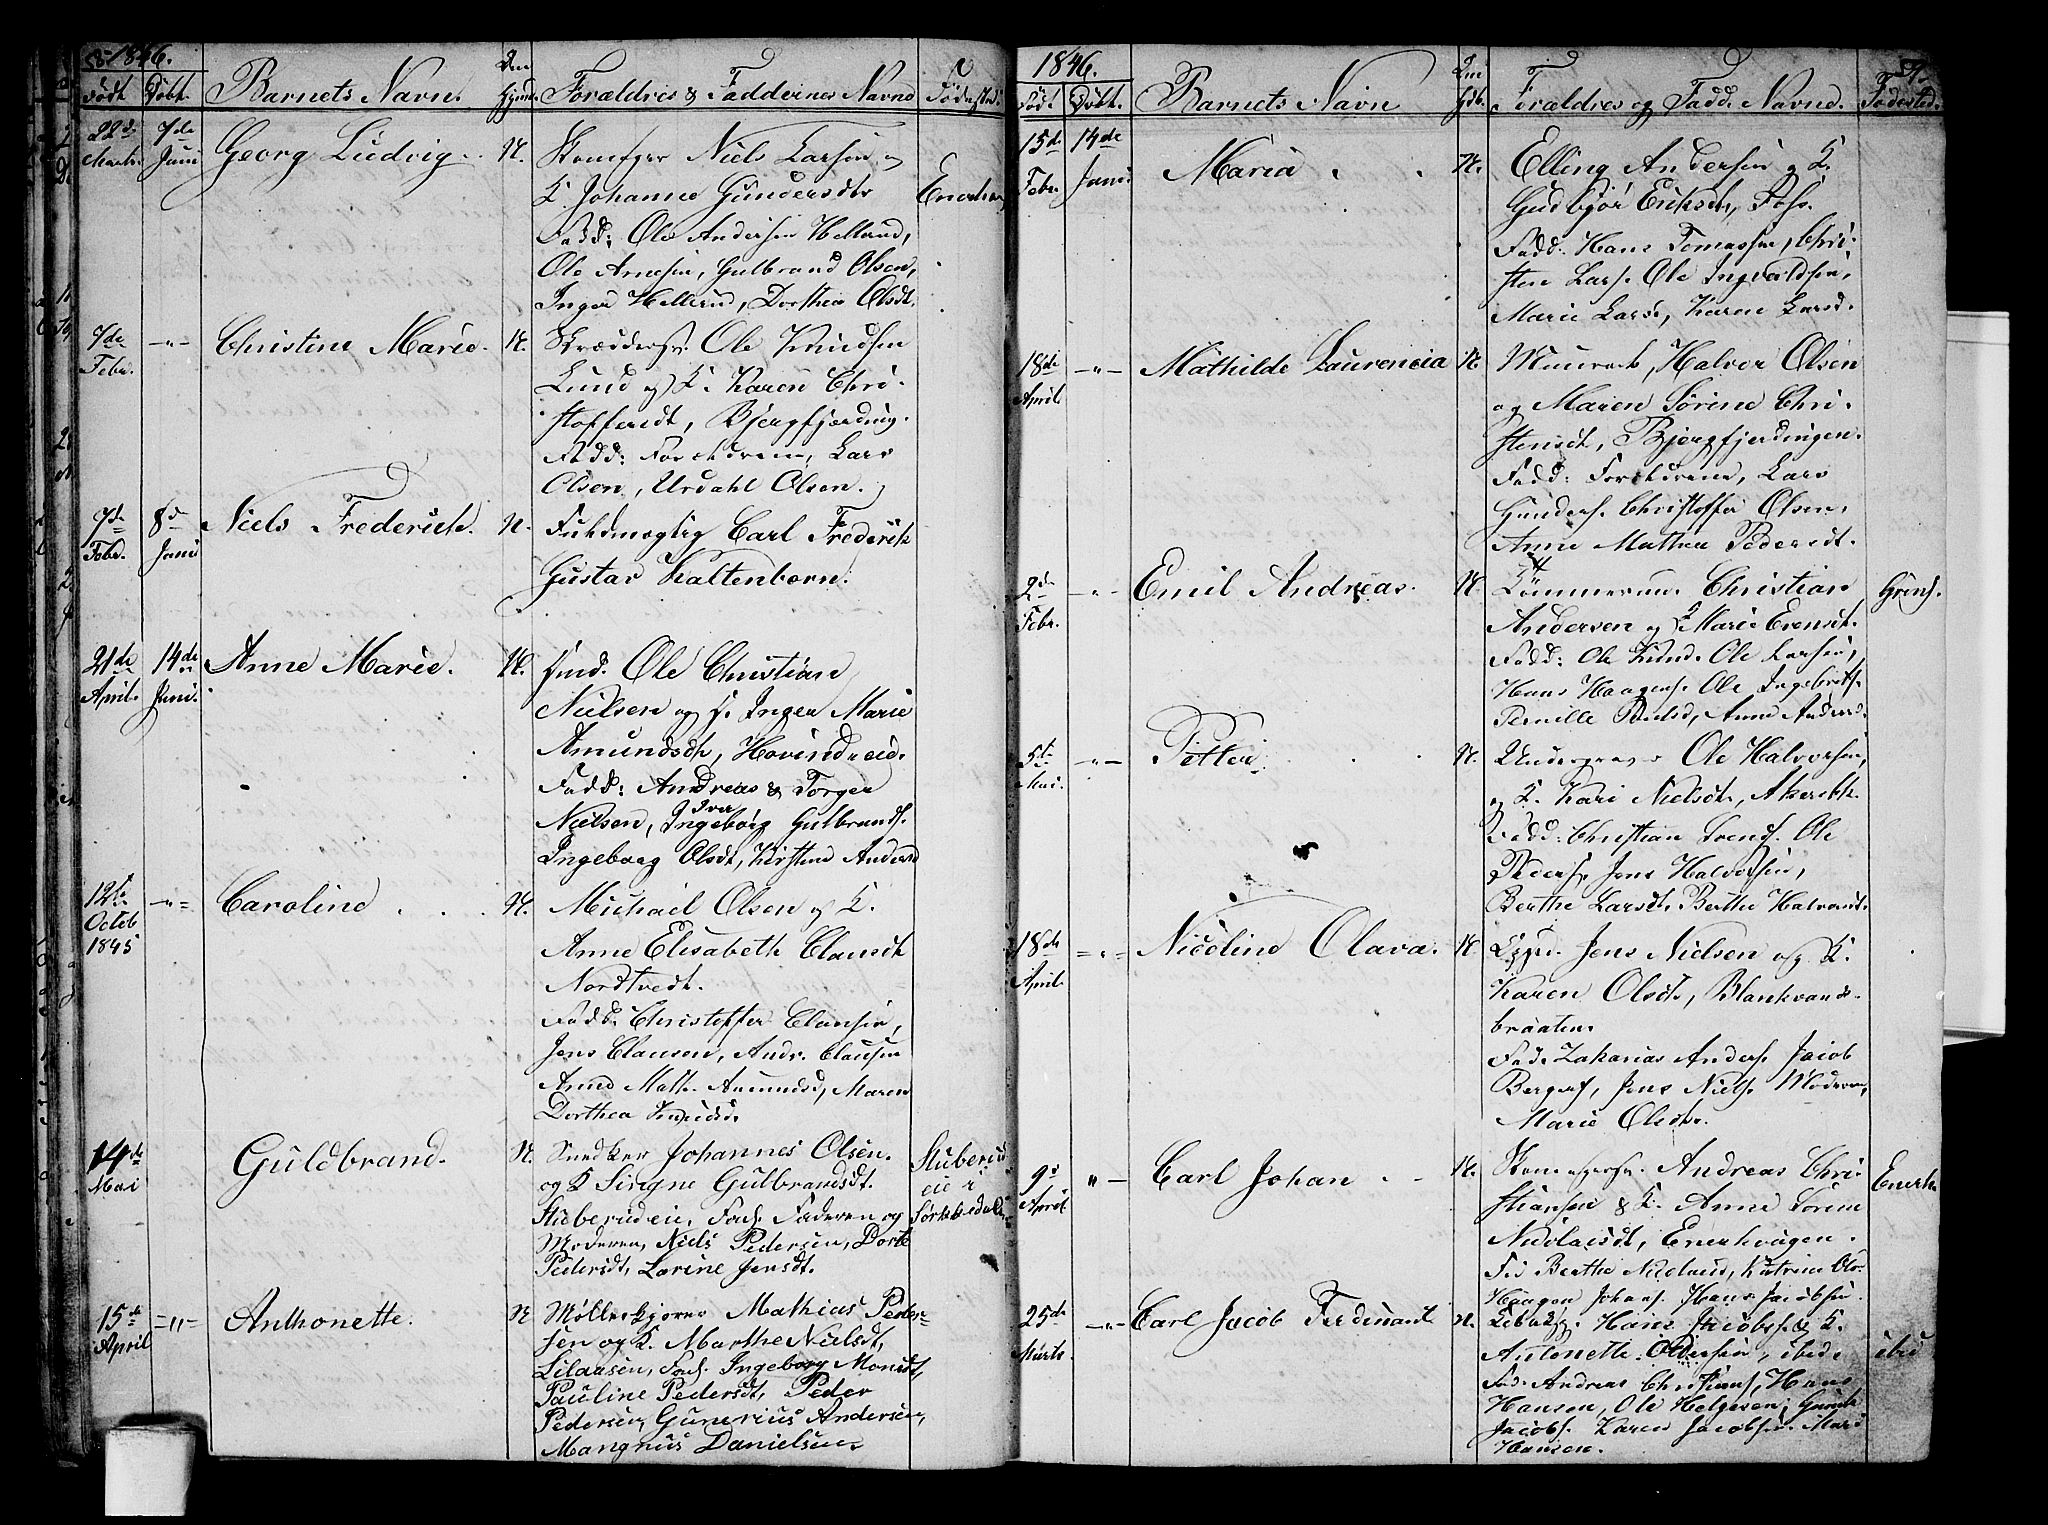 1846.
Født Døbt. Barnets Navn. Den Hjemd. Forældres & Faddernes Navne Fødested.
22de Marts. 7de Juni Georg Ludvig. N. Niels Larsen og
K. Johanne Gundersdtr
Fadd: Ole Andersen Hellerud,
Ole Arnesen, Gulbrand Olsen,
Inger Hellerud, Dorthea Olsdt.
7de Febr. -"- Christine Marie. N. Skrædders. Ole Knudsen
Lund og K. Karen Chri-
stoffersdt, Bjergfjerding.
Fadd: Forældrene, Lars
Olsen, Urdahl Olsen.
7de Febr. 8d Juni Niels Frederich. N. Fuldmægtig Carl Frederik
Gustav Kaltenborn.
21de April. 14de Juni. Anne Marie. N. Ole Christian
Nielsen og K. Inger Marie
Amundsdt, Hovindseie.
Fadd: Andreas & Torger
Nielsen, Iver Gulbrands.
Ingeborg Olsdt, Kirstine Anders
12te Octob 1845 -"- Caroline N. Michael Olsen og K.
Anne Elisabeth Clausdt
Nordtvedt.
Fadd: Christoffer Clausen,
Jens Clausen, Andr. Clausen
Anne Math. Amundsd, Maren
Dorthea Knudsd.
14de Mai Guldbrand. N. Snedker Johannes Olsen. Stuberud
og K Signe Gulbrandsdt. eie i
Stuberudeie, Fad. Faderen og Sørkedalen
Moderen, Niels Pedersen, Dorte
Pedersdt, Lorine Jensdt.
15de April -"- Anthonette. N Møllerkjører Mathias Peder-
sen og K. Marthe Nielsdt,
Lilaasen, Fad. Ingeborg Monsdt,
Pauline Pedersdt, Peder
Pedersen, Gunerius Andersen,
Mangnus Danielsen
1846. 57.
Født. Døbt. Barnets Navn Forældres og Fadd. Navne. Fødested.
15de Febr. 14de Juni. Maria N. Elling Andersen og K.
Gudbjør Eriksdt, Fos.
Fadd: Hans Tomassen, Chri-
sten Lars. Ole Ingvaldsen,
Marie Larsd, Karen Larsd.
18de April -"- Mathilde Laurencia N Halvor Olsen
og Maren Sørine Chri-
stensdt, Bjergfjerdingen.
Fadd: Forældrene, Lars
Gunders. Christoffer Olsen,
Anne Mathea Pedersdt.
2de Febr. -"- Emil Andreas. N. Tømmerm. Christian Grøns.
Andersen og Marie Evensdt.
Fadd: Ole Knuds. Ole Larsen,
Hans Haagens. Ole Ingebrets.
Pernille Nielsd, Anne Andersd.
5te Mai. -"- Petter. N. Ole Halvorsen,
og K. Kari Nielsdt, Akersbk.
Fadd: Christian Svends. Ole
Peders. Jens Halvorsen,
Berthe Larsdt. Berthe Halvorsdt.
18de April -"- Nicoline Olava. N. Jens Nielsen og K.
Karen Olsdt, Blankvands-
braaten.
Fad. Zakarias Anders. Jacob
Berges, Jens Niels. Moderen,
Marie Olsdtr.
9d April " - Carl Johan N. Andreas Chri- Enerh.
stiansen & K. Anne Sorine
Nicolaisdt, Enerhougen.
Fad Berthe Nicolaisd, Katrine Ols-
Haagen Johans. Hans Jacobsen.
25de Marts. -"- Carl Jacob Ferdinant N. Hans Jacobs. & K.
Antonette Oldersen, ibid. ibid
Fad. Andreas Christians, Hans
Hansen, Ole Helgesen,
Jacobs. Karen Jacobsen. Mari
Hansen.